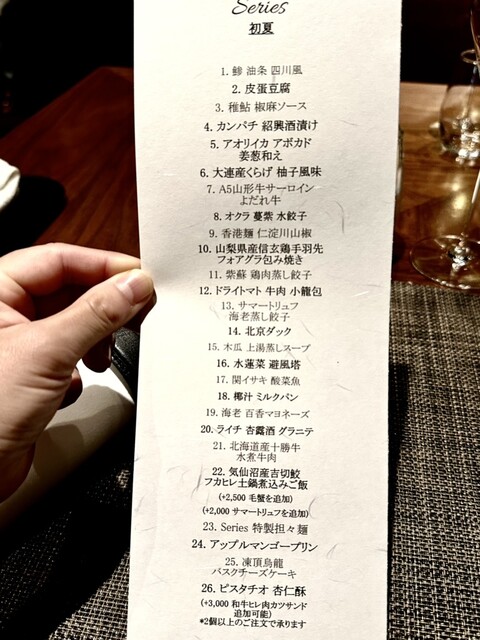 Series
初夏
1. 鯵 油条 四川風
2. 皮蛋豆腐
3. 稚鮎 椒麻ソース
4. カンパチ 紹興酒漬け
5. アオリイカ アボカド
姜葱和え
6. 大連産くらげ 柚子風味
7. A5山形牛サーロイン
よだれ牛
8. オクラ 蔓紫 水餃子
9. 香港麺 仁淀川山椒
10. 山梨県産信玄鶏手羽先
フォアグラ包み焼き
11. 紫蘇 鶏肉蒸し餃子
12. ドライトマト 牛肉 小籠包
13. サマートリュフ
海老蒸し餃子
14. 北京ダック
15. 木瓜 上湯蒸しスープ
16. 水蓮菜 避風塔
17. 関イサキ 酸菜魚
18. 椰汁 ミルクパン
19. 海老 百香マヨネーズ
20. ライチ 杏露酒 グラニテ
21. 北海道産十勝牛
水煮牛肉
22. 気仙沼産吉切鮫
フカヒレ土鍋煮込みご飯
(+2,500 毛蟹を追加)
(+2,000 サマートリュフを追加)
23. Series 特製担々麺
24. アップルマンゴープリン
25. 凍頂烏龍
バスクチーズケーキ
26. ピスタチオ 杏仁酥
(+3,000 和牛ヒレ肉カツサンド
追加可能)
*2個以上のご注文で承ります